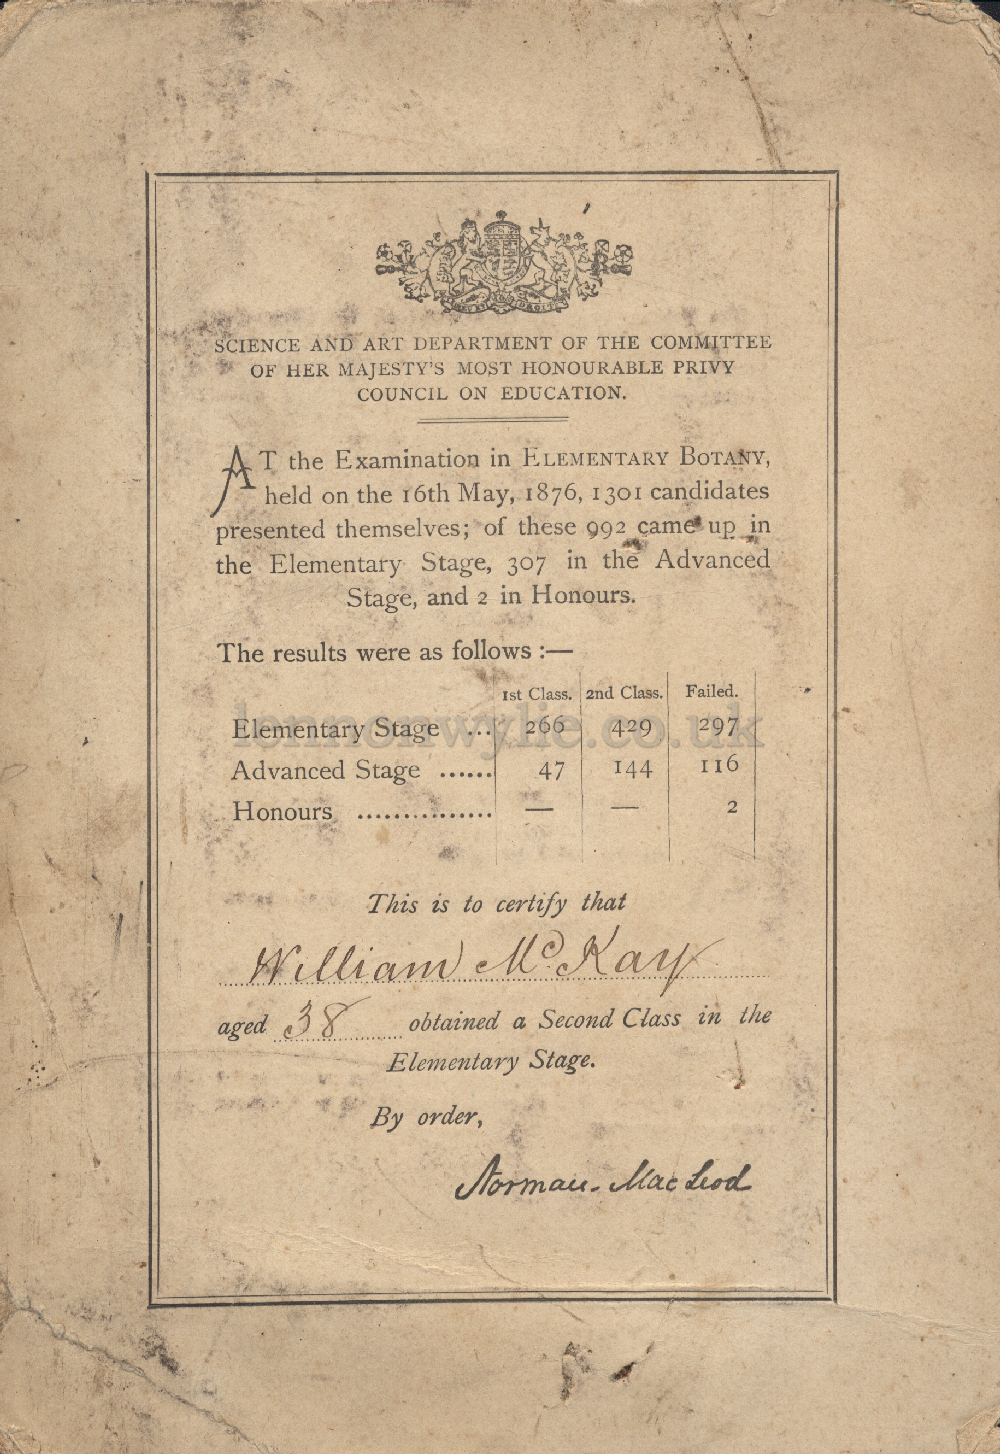 SCIENCE AND ART DEPARTMENT OF THE COMMITTEE
OF HER MAJESTY'S MOST HONOURABLE PRIVY
COUNCIL ON EDUCATION.
AT the Examination in ELEMENTARY BOTANY,
held on the 16th May, 1876, 1301 candidates
presented themselves; of these 992 came up in
the Elementary Stage, 307 in the Advanced
Stage, and 2 in Honours.
The results were as follows :—
1st Class. 2nd Class. Failed.
Elementary Stage ... 266 429 297
lennonwylie.co.uk
Advanced Stage ...... 47 144 116
Honours ............... — — 2
This is to certify that
William McKay
aged 38 obtained a Second Class in the
Elementary Stage.
By order,
Norman MacLeod